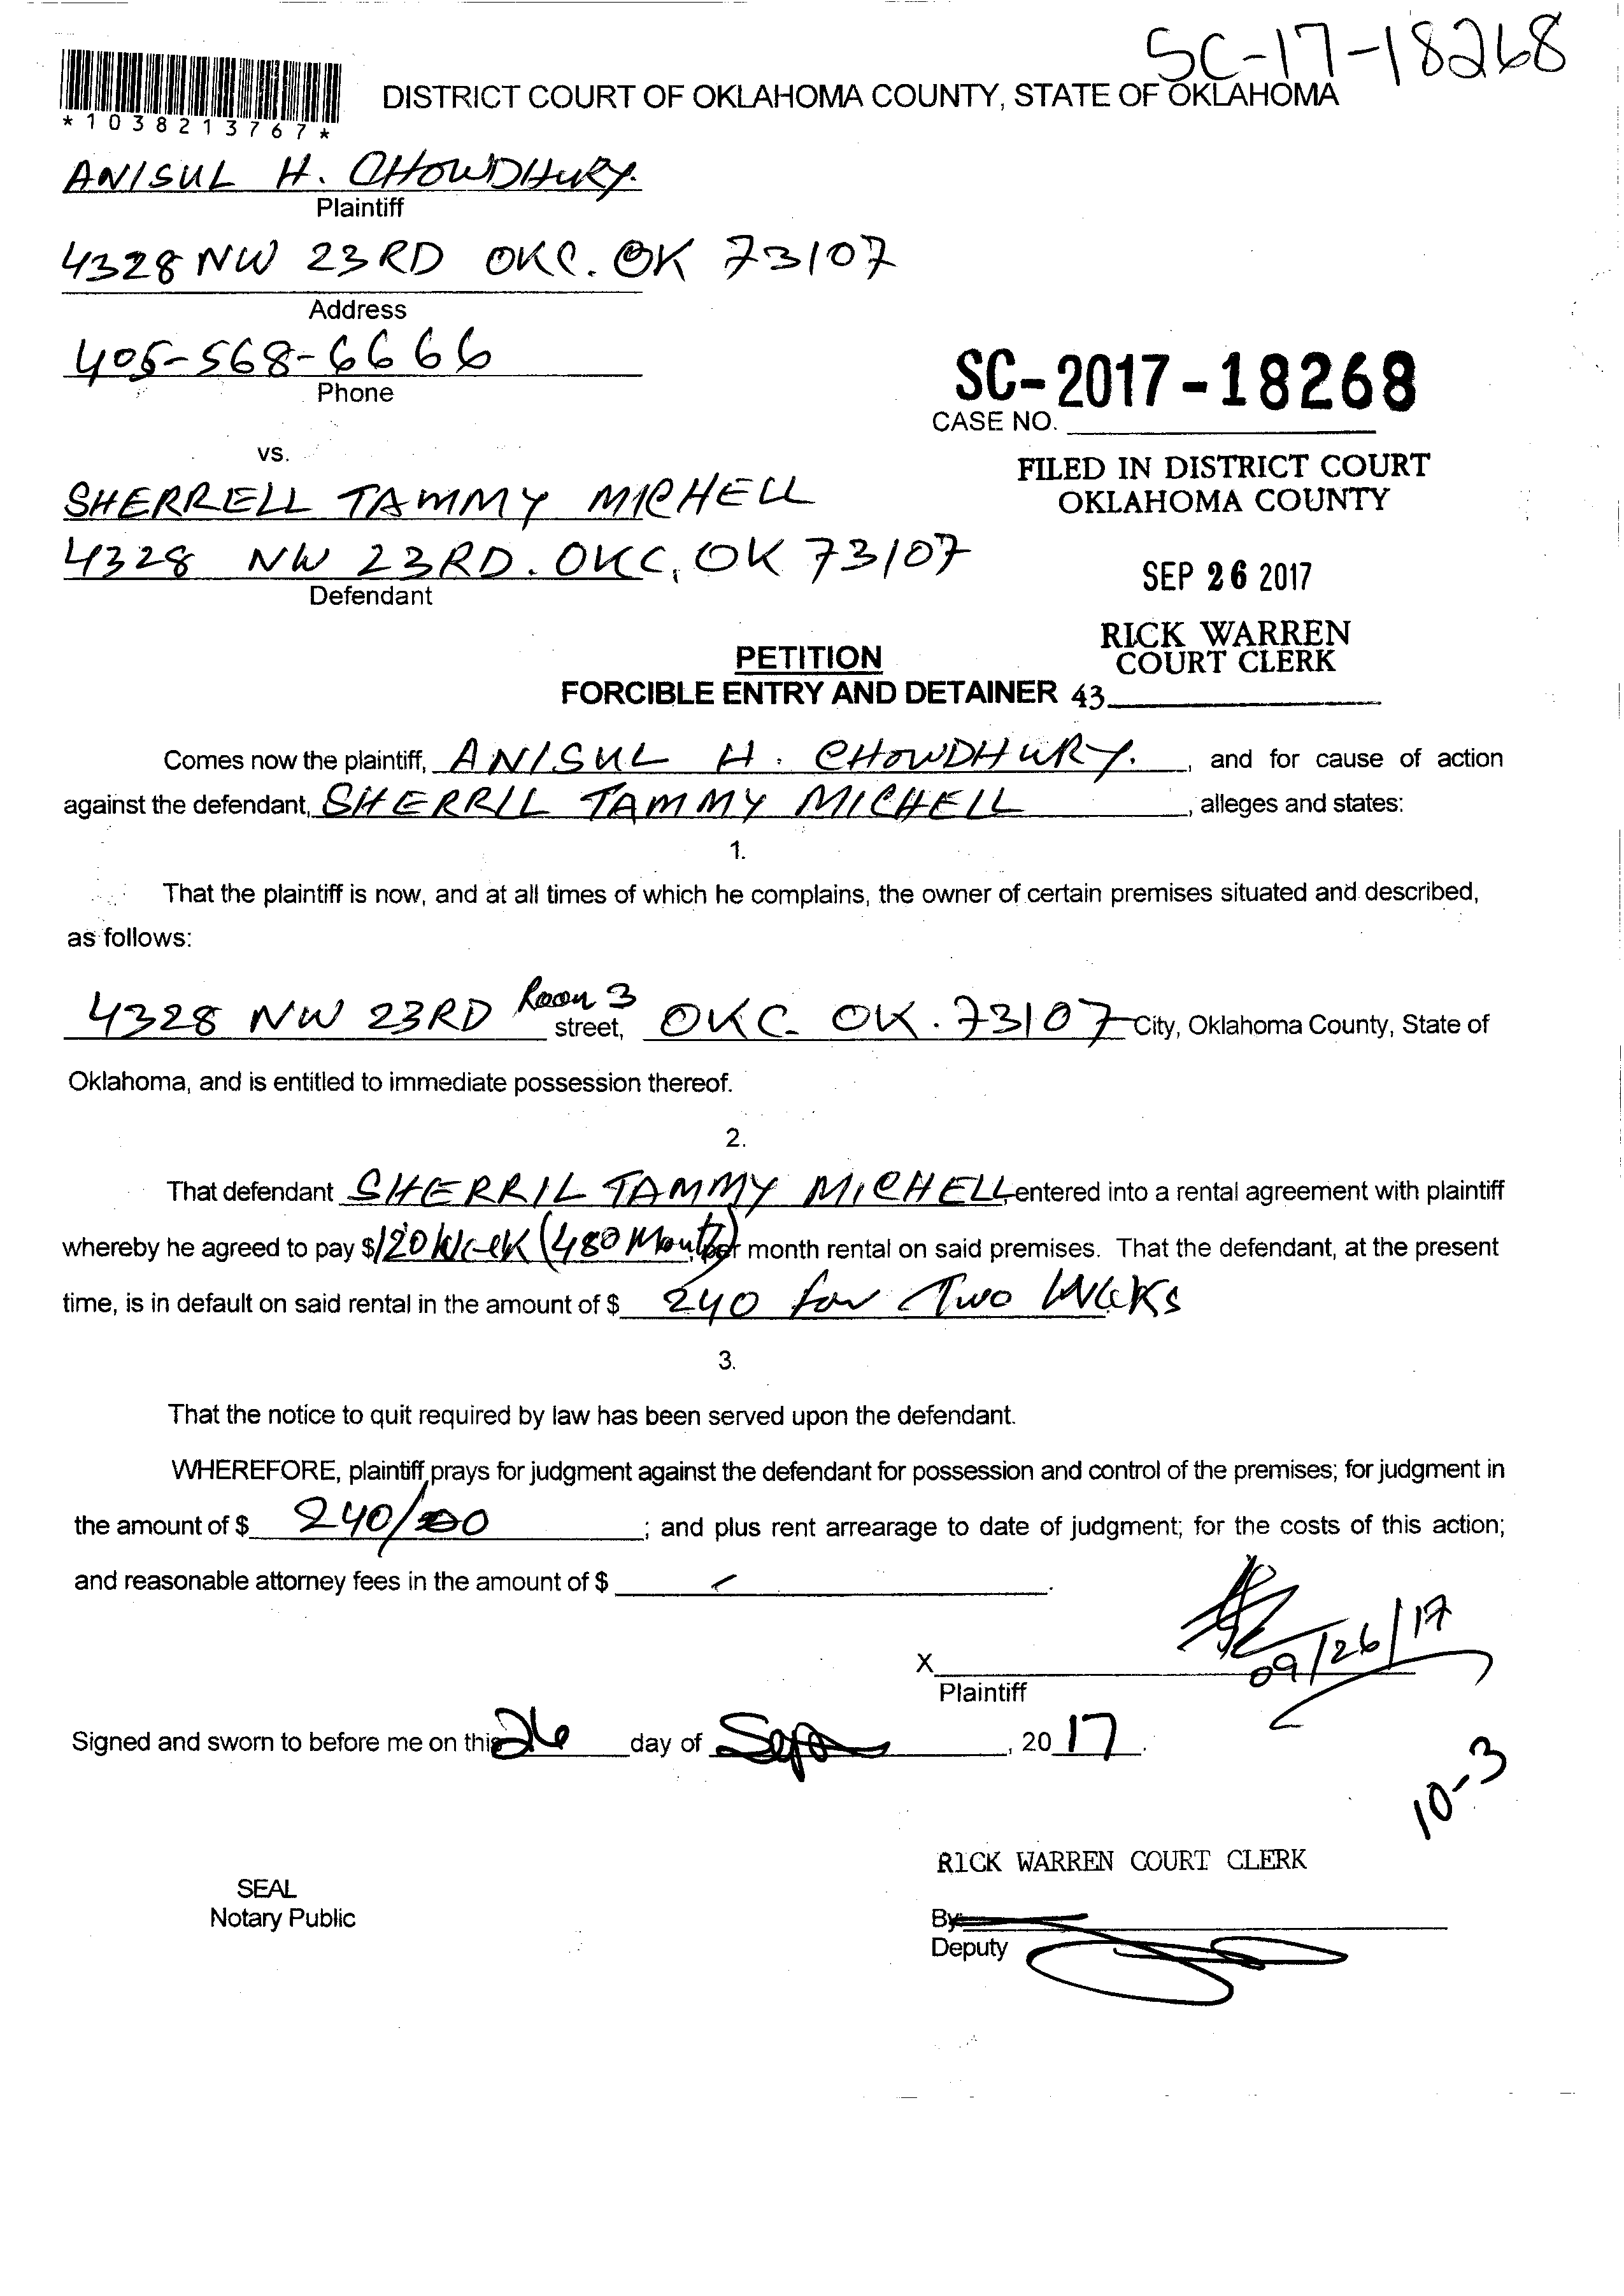 SC-17-18268
*1038213767*
DISTRICT COURT OF OKLAHOMA COUNTY, STATE OF OKLAHOMA
ANISUL H. CHOWDHURY.
Plaintiff
4328 NW 23RD OKC. OK 73107
Address
405-568-6666
Phone
SC-2017-18268
CASE NO.
vs.
FILED IN DISTRICT COURT
OKLAHOMA COUNTY
SHERRELL TAMMY MICHELL
4328 NW 23RD. OKC, OK 73107
Defendant
SEP 26 2017
RICK WARREN
COURT CLERK
PETITION
FORCIBLE ENTRY AND DETAINER 43
Comes now the plaintiff, ANISUL H. CHOWDHURY. , and for cause of action
against the defendant, SHERRIL TAMMY MICHELL , alleges and states:
1.
That the plaintiff is now, and at all times of which he complains, the owner of certain premises situated and described,
as follows:
4328 NW 23RD Room 3 street, OKC. OK. 73107 City, Oklahoma County, State of
Oklahoma, and is entitled to immediate possession thereof.
2.
That defendant SHERRIL TAMMY MICHELL, entered into a rental agreement with plaintiff
whereby he agreed to pay $120 Week (480 Month) per month rental on said premises. That the defendant, at the present
time, is in default on said rental in the amount of $ 240 for Two Weks
3.
That the notice to quit required by law has been served upon the defendant.
WHEREFORE, plaintiff, prays for judgment against the defendant for possession and control of the premises; for judgment in
the amount of $ 240/00 ; and plus rent arrearage to date of judgment; for the costs of this action;
and reasonable attorney fees in the amount of $ .
09/26/17
X
Plaintiff
Signed and sworn to before me on this 26 day of Sept , 20 17 .
10-3
RICK WARREN COURT CLERK
SEAL
Notary Public
By
Deputy